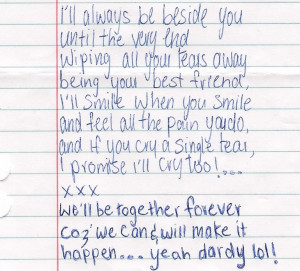 I'll always be beside you
until the very end
wiping all your tears away
being your best friend,
I'll smile when you smile
and feel all the pain you do,
and if you cry a single tear,
I promise i'll cry too!....
xxx
we'll be together forever
coz' we can & will make it
happen.... yeah dardy lol!